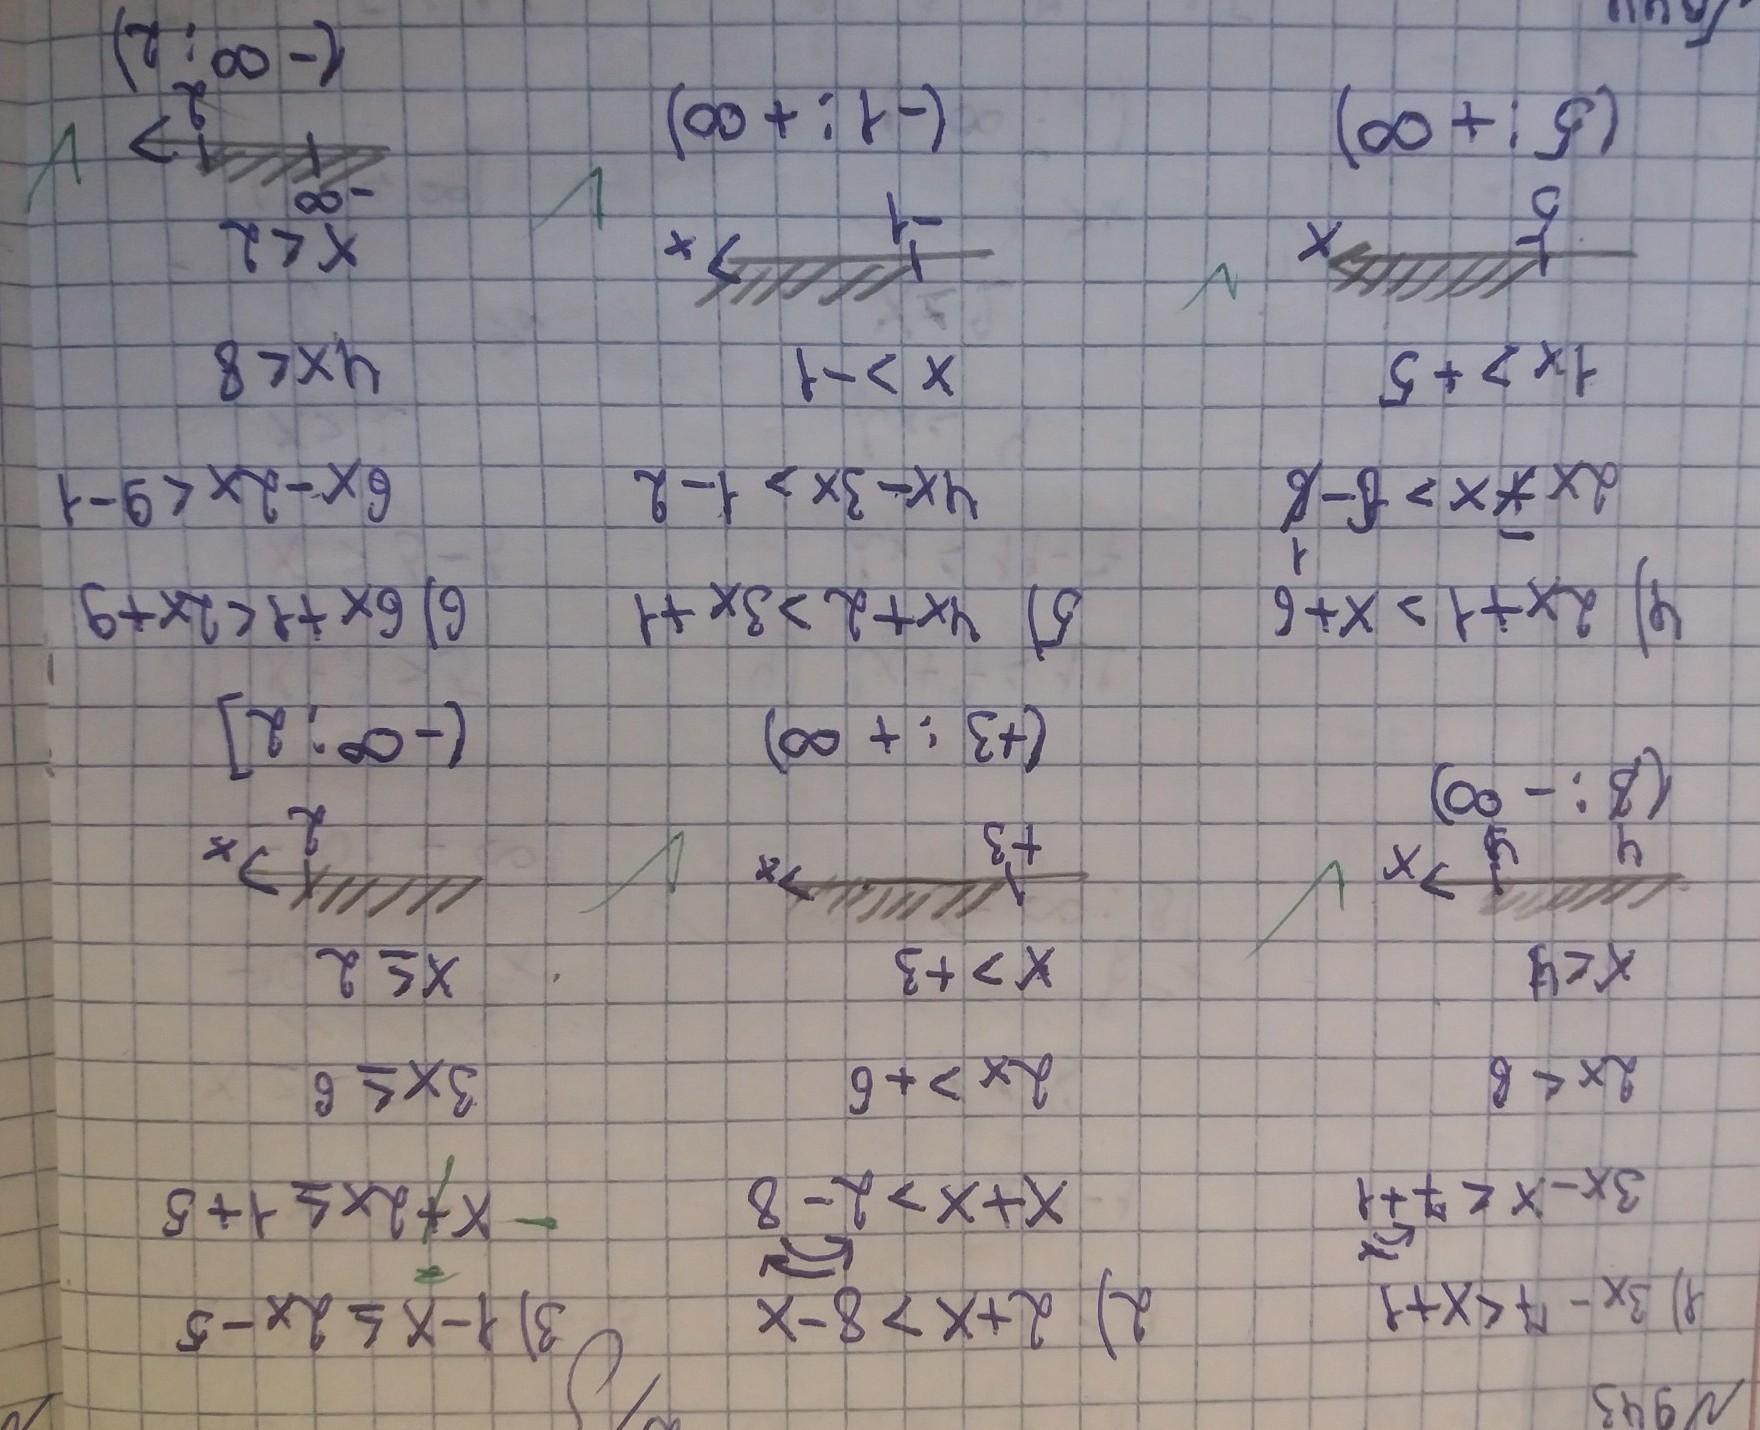 N943
1) 3x-7<x+1
3x-x<7+1
2x<8
x<4
x
4
(4;-∞)
2) 2+x>8-x
x+x>2-8
2x>+6
x>+3
+3
x
(+3;+∞)
3) 1-x≤2x-5
x+2x≤1+5
3x≤6
x≤2
2
x
(-∞;2]
4) 2x+1>x+6
2x-x>6-1
1x>+5
5
x
(5;+∞)
5) 4x+2>3x+1
4x-3x>1-2
x>-1
-1
x
(-1;+∞)
6) 6x+1<2x+9
6x-2x<9-1
4x<8
x<2
-∞
2
(-∞;2)